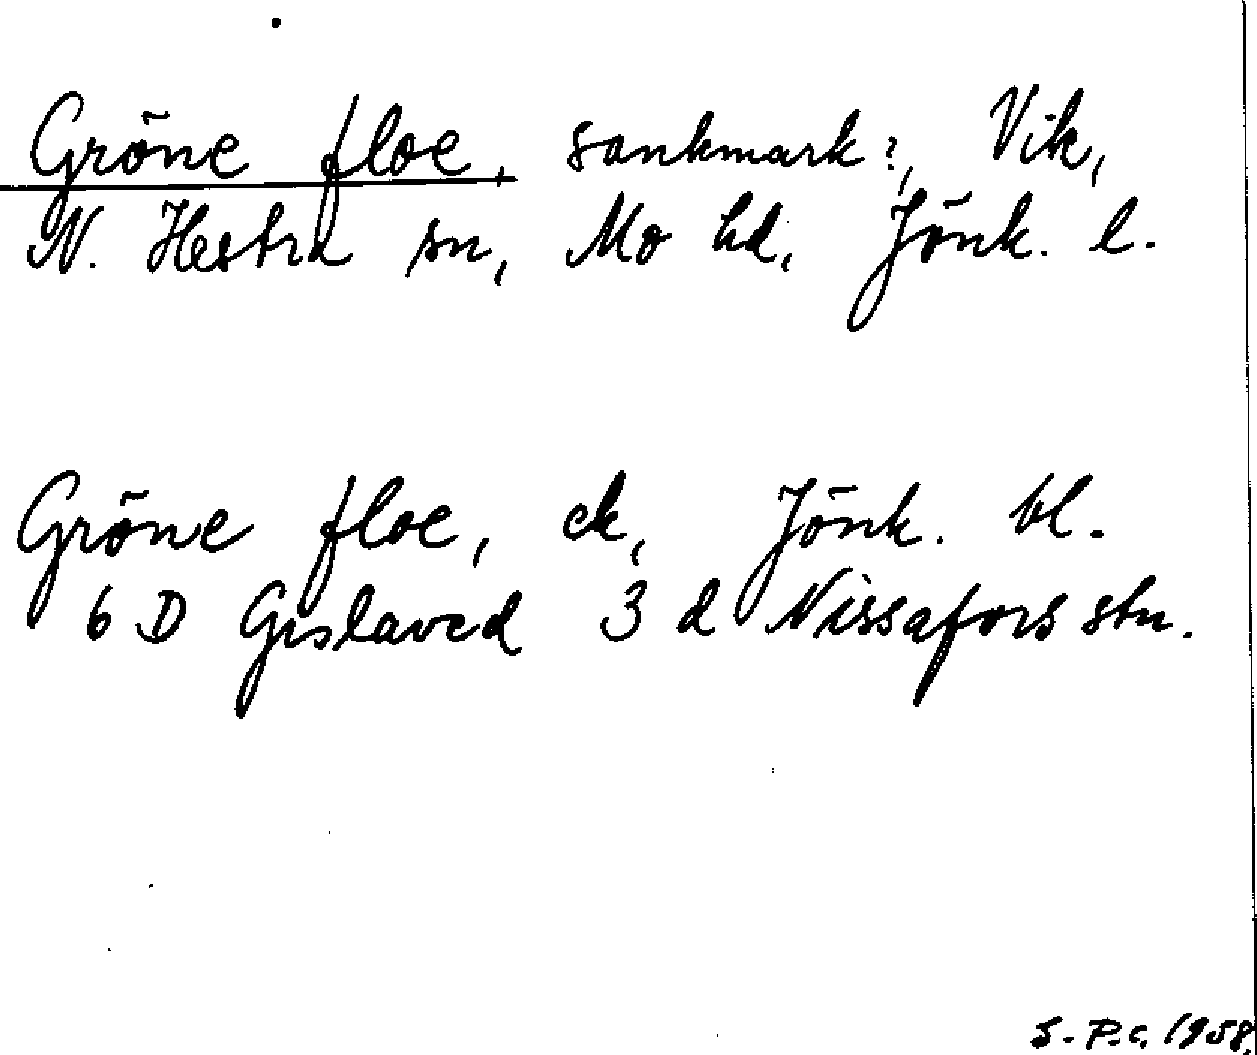 Gröne floe, sankmark?, Vik,
N. Hestra sn, Mo hd, Jönk. l.
Gröne floe, ek, Jönk. bl.
6 D Gislaved 3 d Nissafors stn.
S. P. c. 1958.